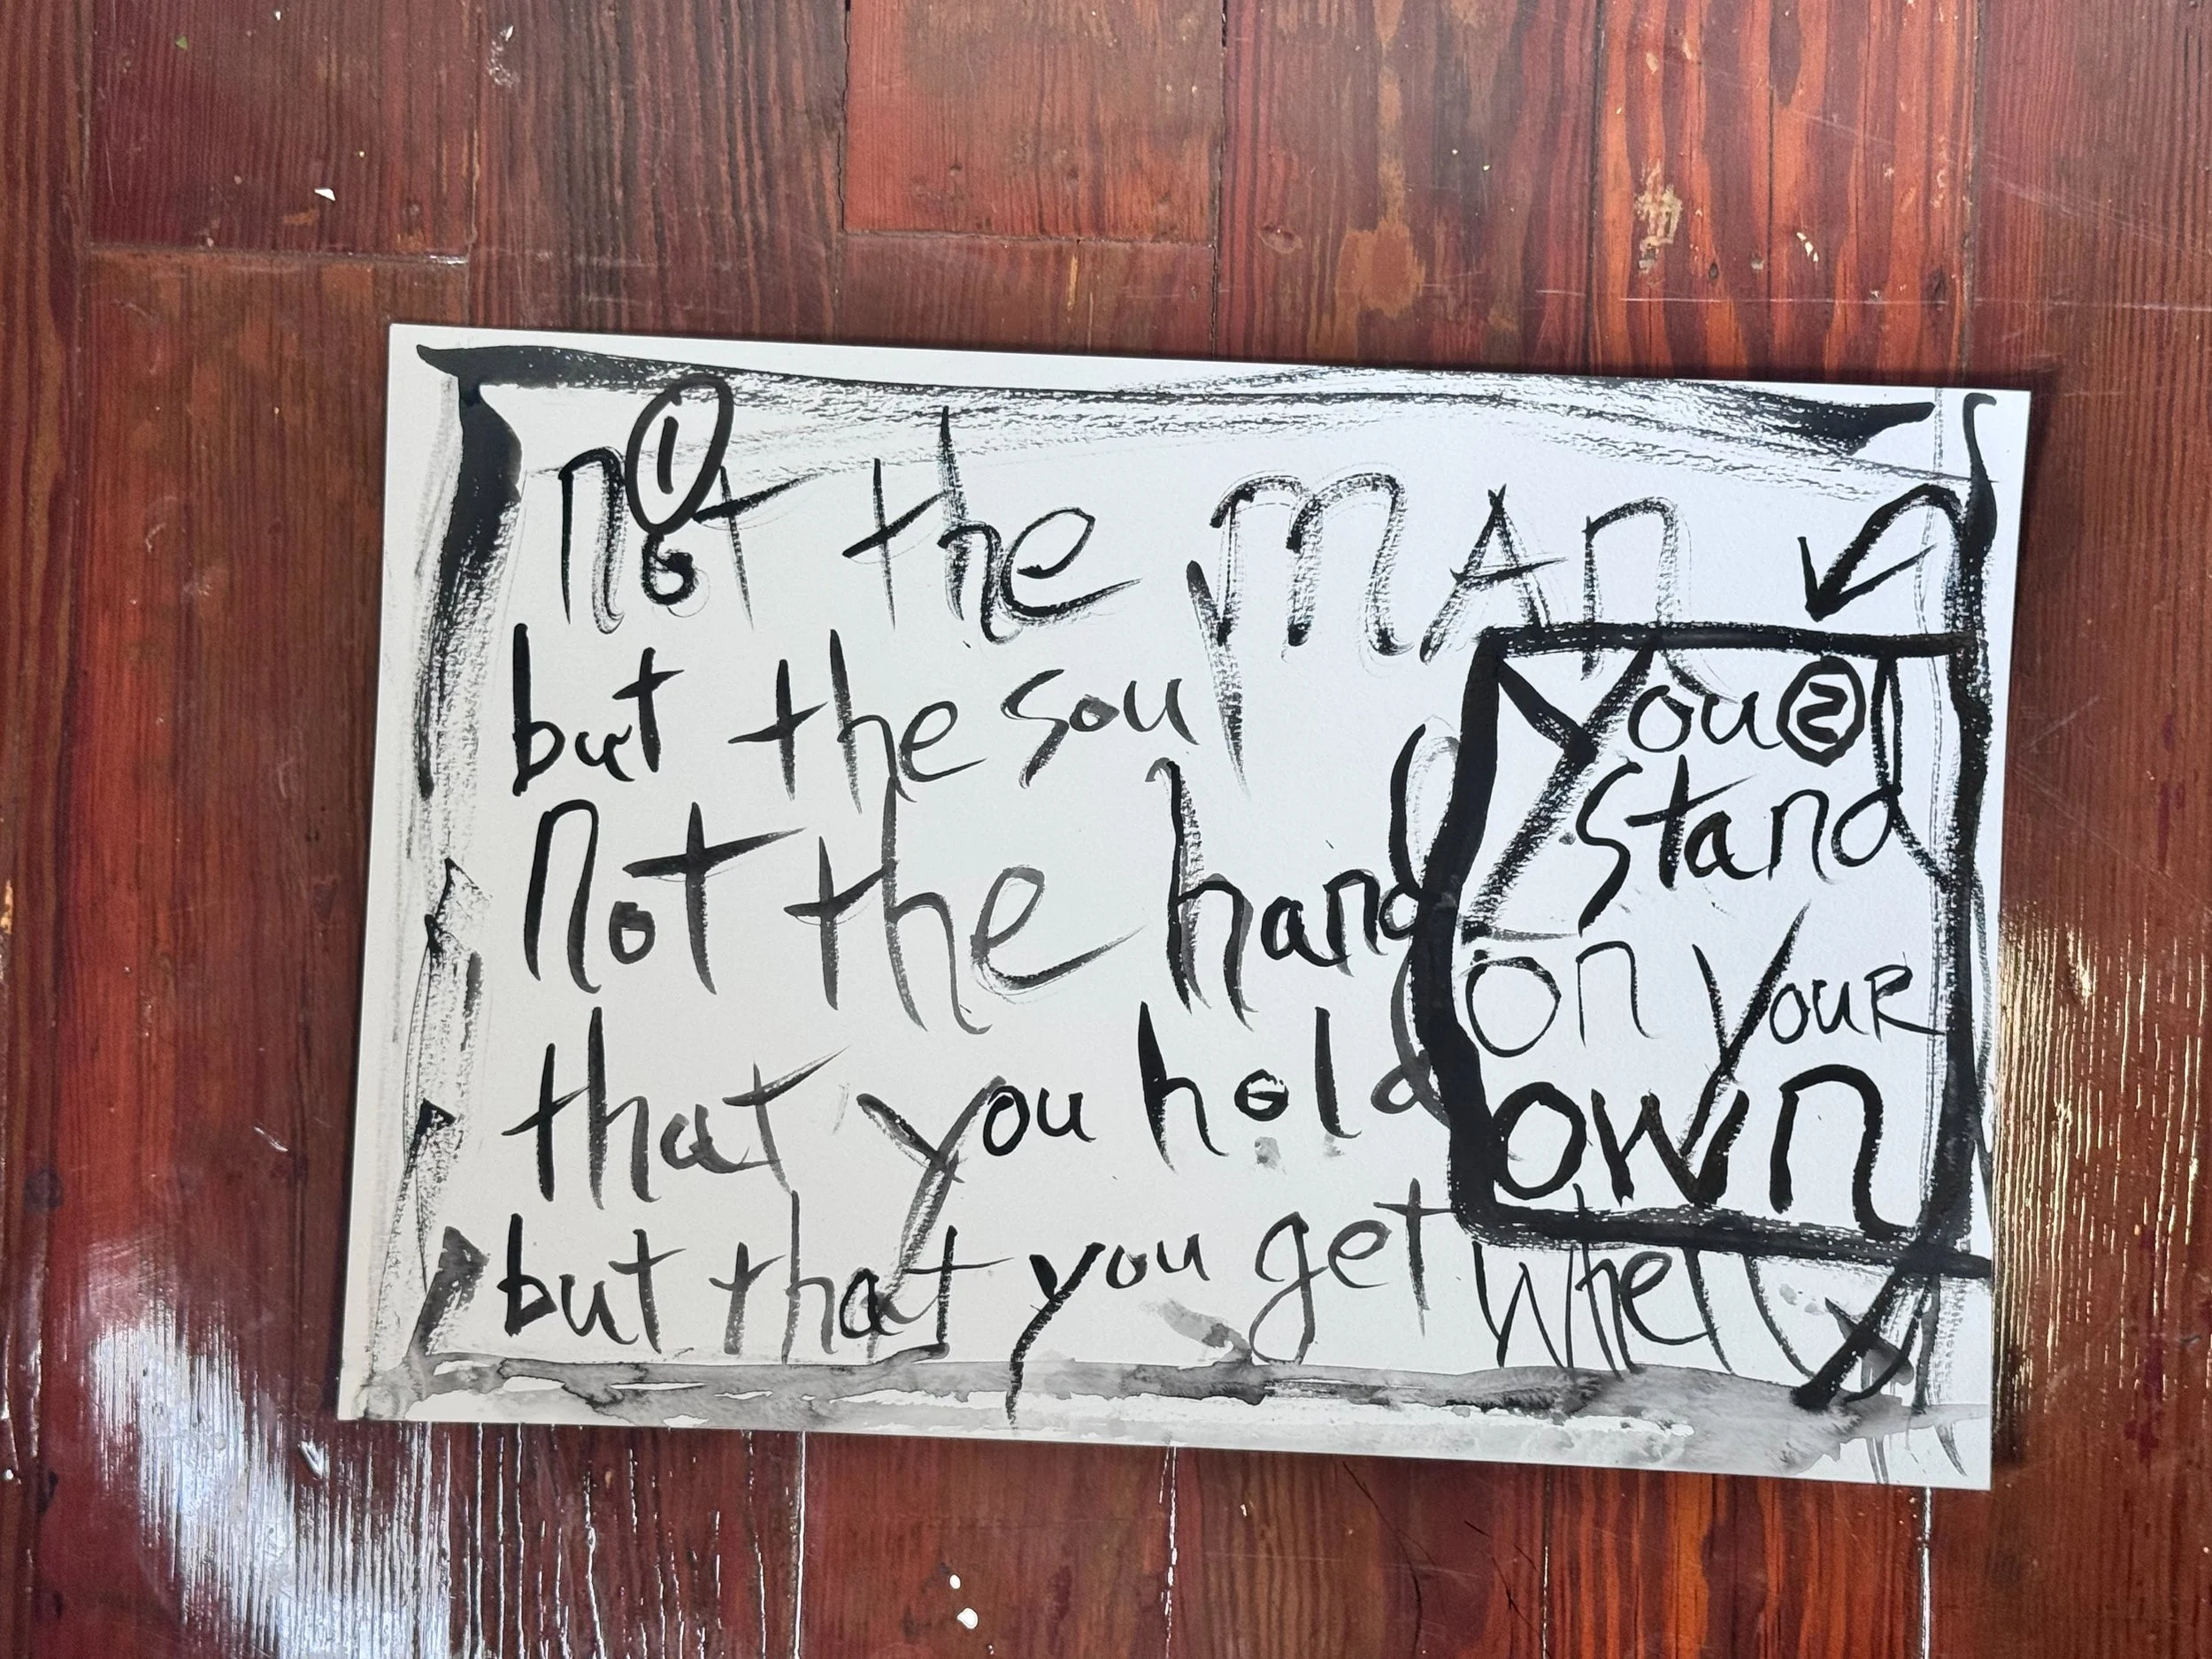 ① not the mAn
but the soul
Not the hand
that you hold
but that you get when
② You
Stand
on your
own